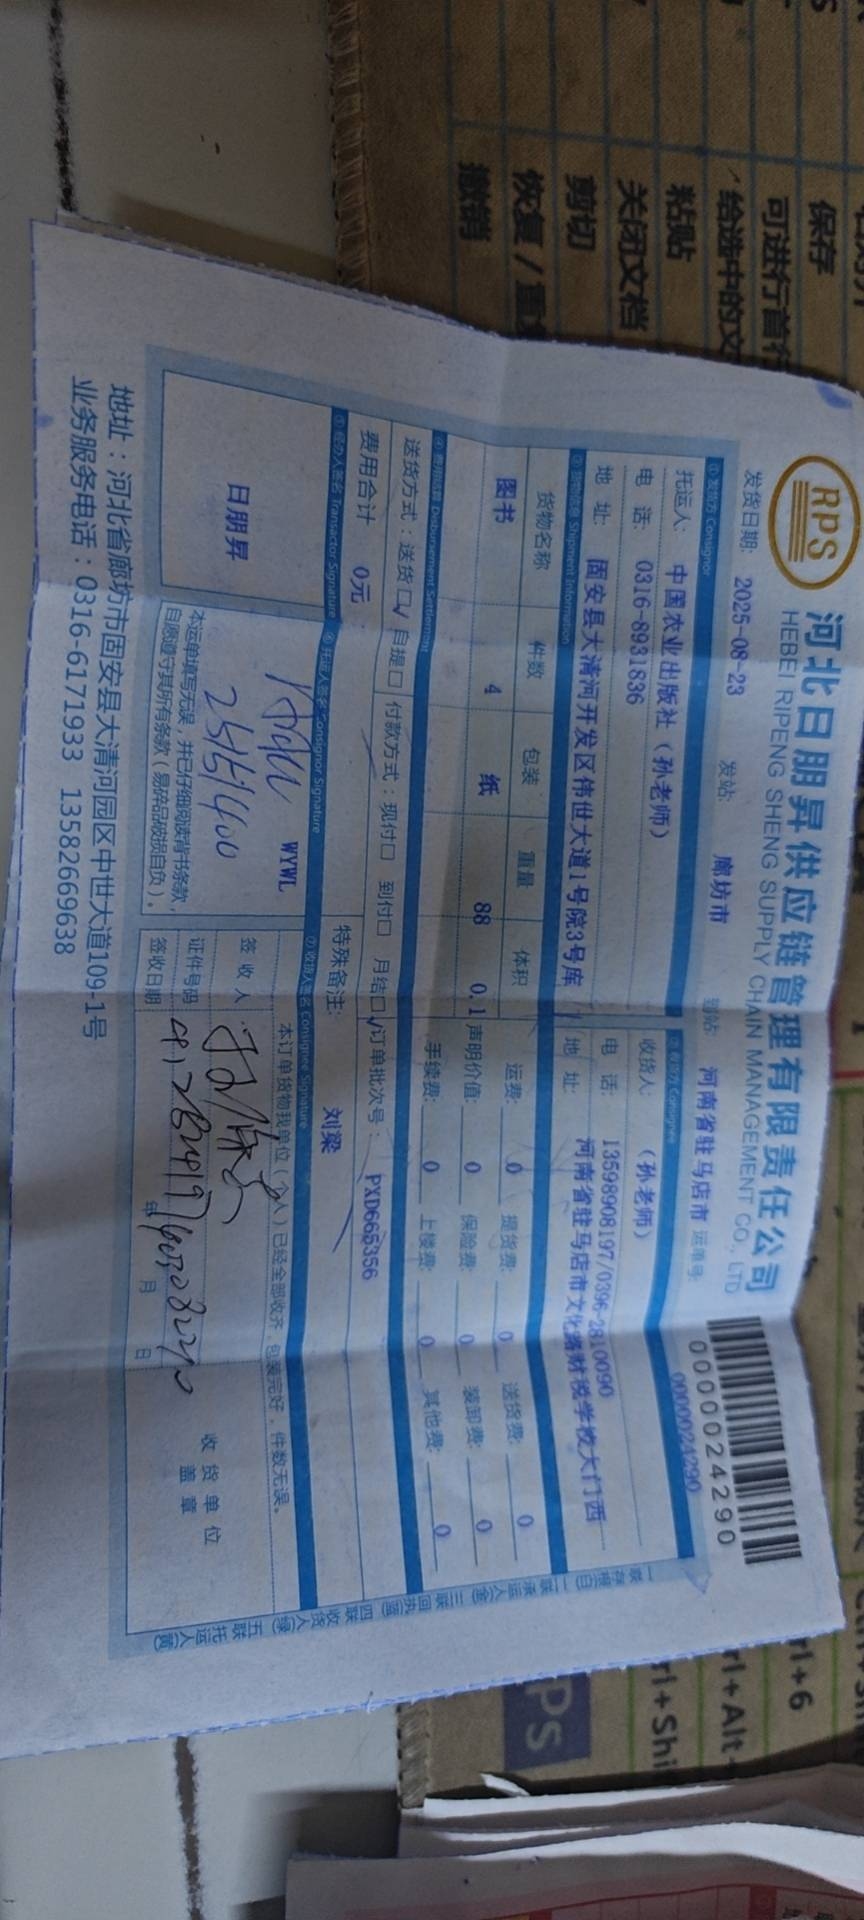 保存
可进行首行
给选中的文
粘贴
关闭文档
剪切
恢复/重复
撤销
RPS
河北日朋昇供应链管理有限责任公司
HEBEI RIPENG SHENG SUPPLY CHAIN MANAGEMENT CO., LTD
0000024290
发货日期: 2025-08-23 发站: 廊坊市 到站: 河南省驻马店市 运单号: 0000024290
① 发货方 Consignor
② 收货方 Consignee
托运人: 中国农业出版社（孙老师）
收货人: （孙老师）
电 话: 0316-8931836
电 话: 13598908197/0396-2810090
地 址: 固安县大清河开发区伟世大道1号院3号库
地 址: 河南省驻马店市文化路财税学校大门西
③ 货物信息 Shipment Information
货物名称 件数 包装 重量 体积
图书 4 纸 88 0.1
运费: 0 提货费: 0 送货费: 0
声明价值: 0 保险费: 0 装卸费: 0
手续费: 0 上楼费: 0 其他费: 0
④ 费用结算 Disbursement Settlement
送货方式：送货☑ 自提□ 付款方式：现付□ 到付□ 月结☑ 订单批次号： PXD665356
费用合计 0元
特殊备注: 刘梁
⑤ 经办人签名 Transactor Signature
⑥ 托运人签名 Consignor Signature
⑦ 收货人签名 Consignee Signature
日朋昇
WYWL
本运单填写无误，并已仔细阅读背书条款，
自愿遵守其所有条款（易碎品破损自负）。
本订单货物我单位（个人）已经全部收齐，包装完好，件数无误。
签 收 人
证件号码
签收日期 年 月 日
收货单位
盖 章
一联存根(白) 二联承运人(金) 三联回执(蓝) 四联收货人(绿) 五联托运人(黄)
地址：河北省廊坊市固安县大清河园区中世大道109-1号
业务服务电话：0316-6171933 13582669638
rl+6
rl+Alt
rl+Shi
PS